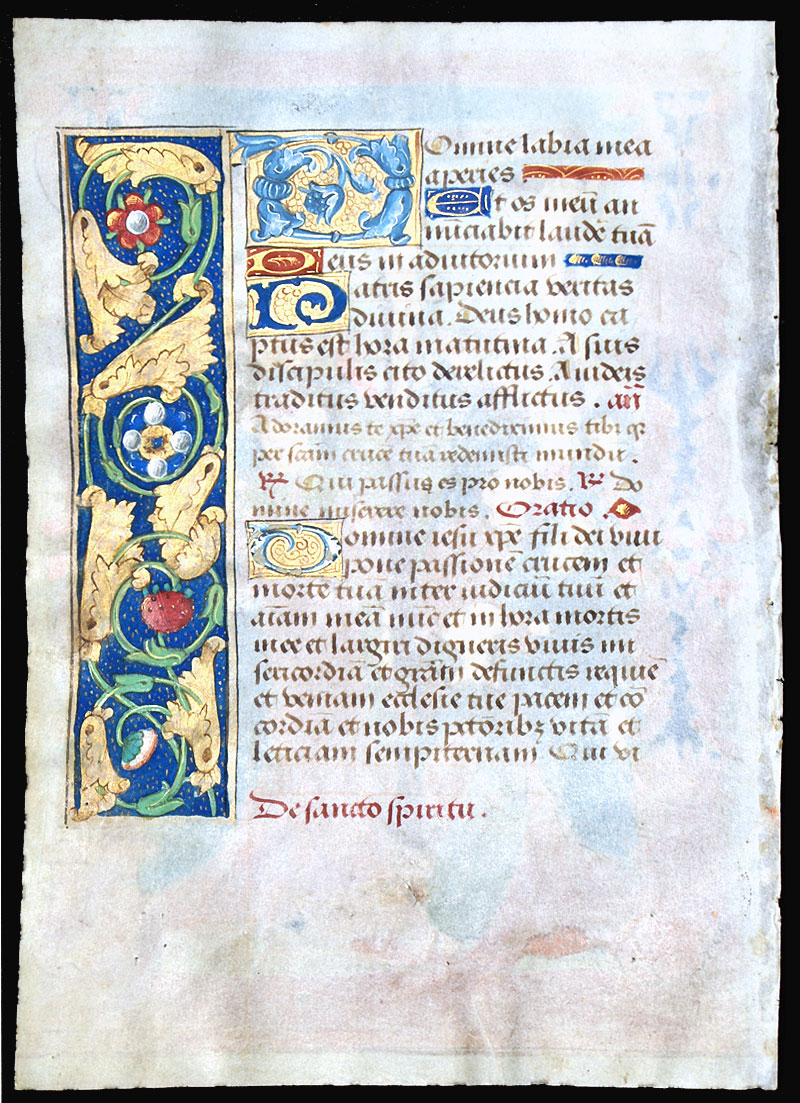 Domine labia mea
aperies.
Et os meũ an
nunciabit laudẽ tuã
Deus in adiutorium
Patris sapiencia veritas
divina. Deus homo ca
ptus est hora matutina. A suis
discipulis cito derelictus. A iudeis
traditus venditus afflictus. añ
Adoramus te xp̃e et benedicimus tibi q̃
per sc̃am crucẽ tuã redemisti mundũ.
℣ Qui passus es pro nobis. ℟ Do
mine miserere nobis. Oratio.
Domine iesu xp̃e fili dei vivi
pone passionẽ crucem et
mortẽ tuã inter iudiciũ tuũ et
aĩam meã nũc et in hora mortis
mee et largiri digneris vivis mi
sericordiã et grãm defunctis requiẽ
et veniam ecclesie tue pacem et cõ
cordiã et nobis pctõribꝫ vitã et
leticiam sempiternam Qui vi
De sancto spiritu.